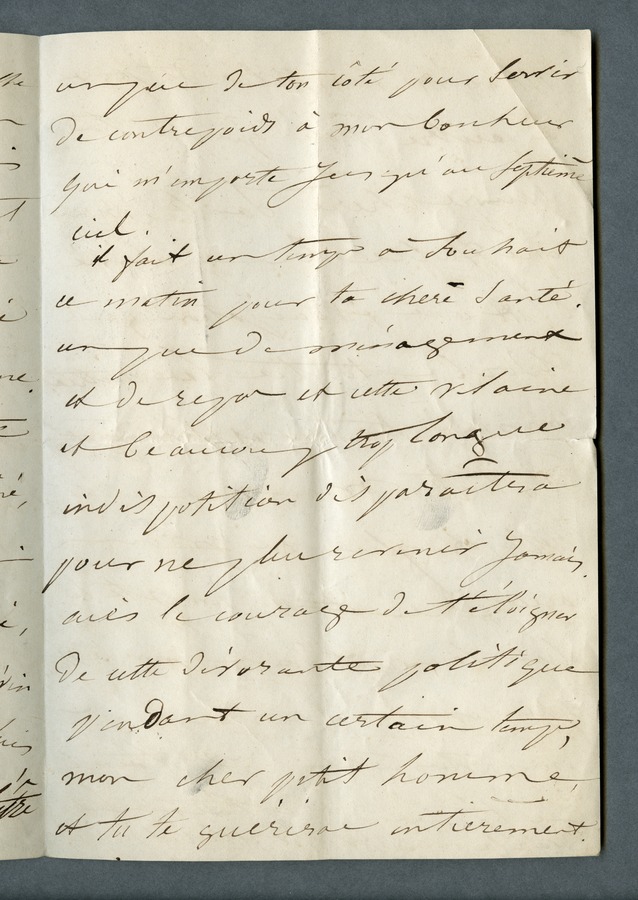 un peu de ton côté pour servir
de contrepoids à mon bonheur
qui m'emporte jusqu'au septième
ciel.
il fait un temps à souhait
ce matin pour ta chere santé.
un peu de ménagement
et de repos et cette vilaine
et beaucoup trop longue
indisposition disparaîtera
pour ne plus revenir jamais.
aies le courage de t'éloigner
de cette dévorante politique
pendant un certain temps,
mon cher petit homme,
et tu te guériras entierement.